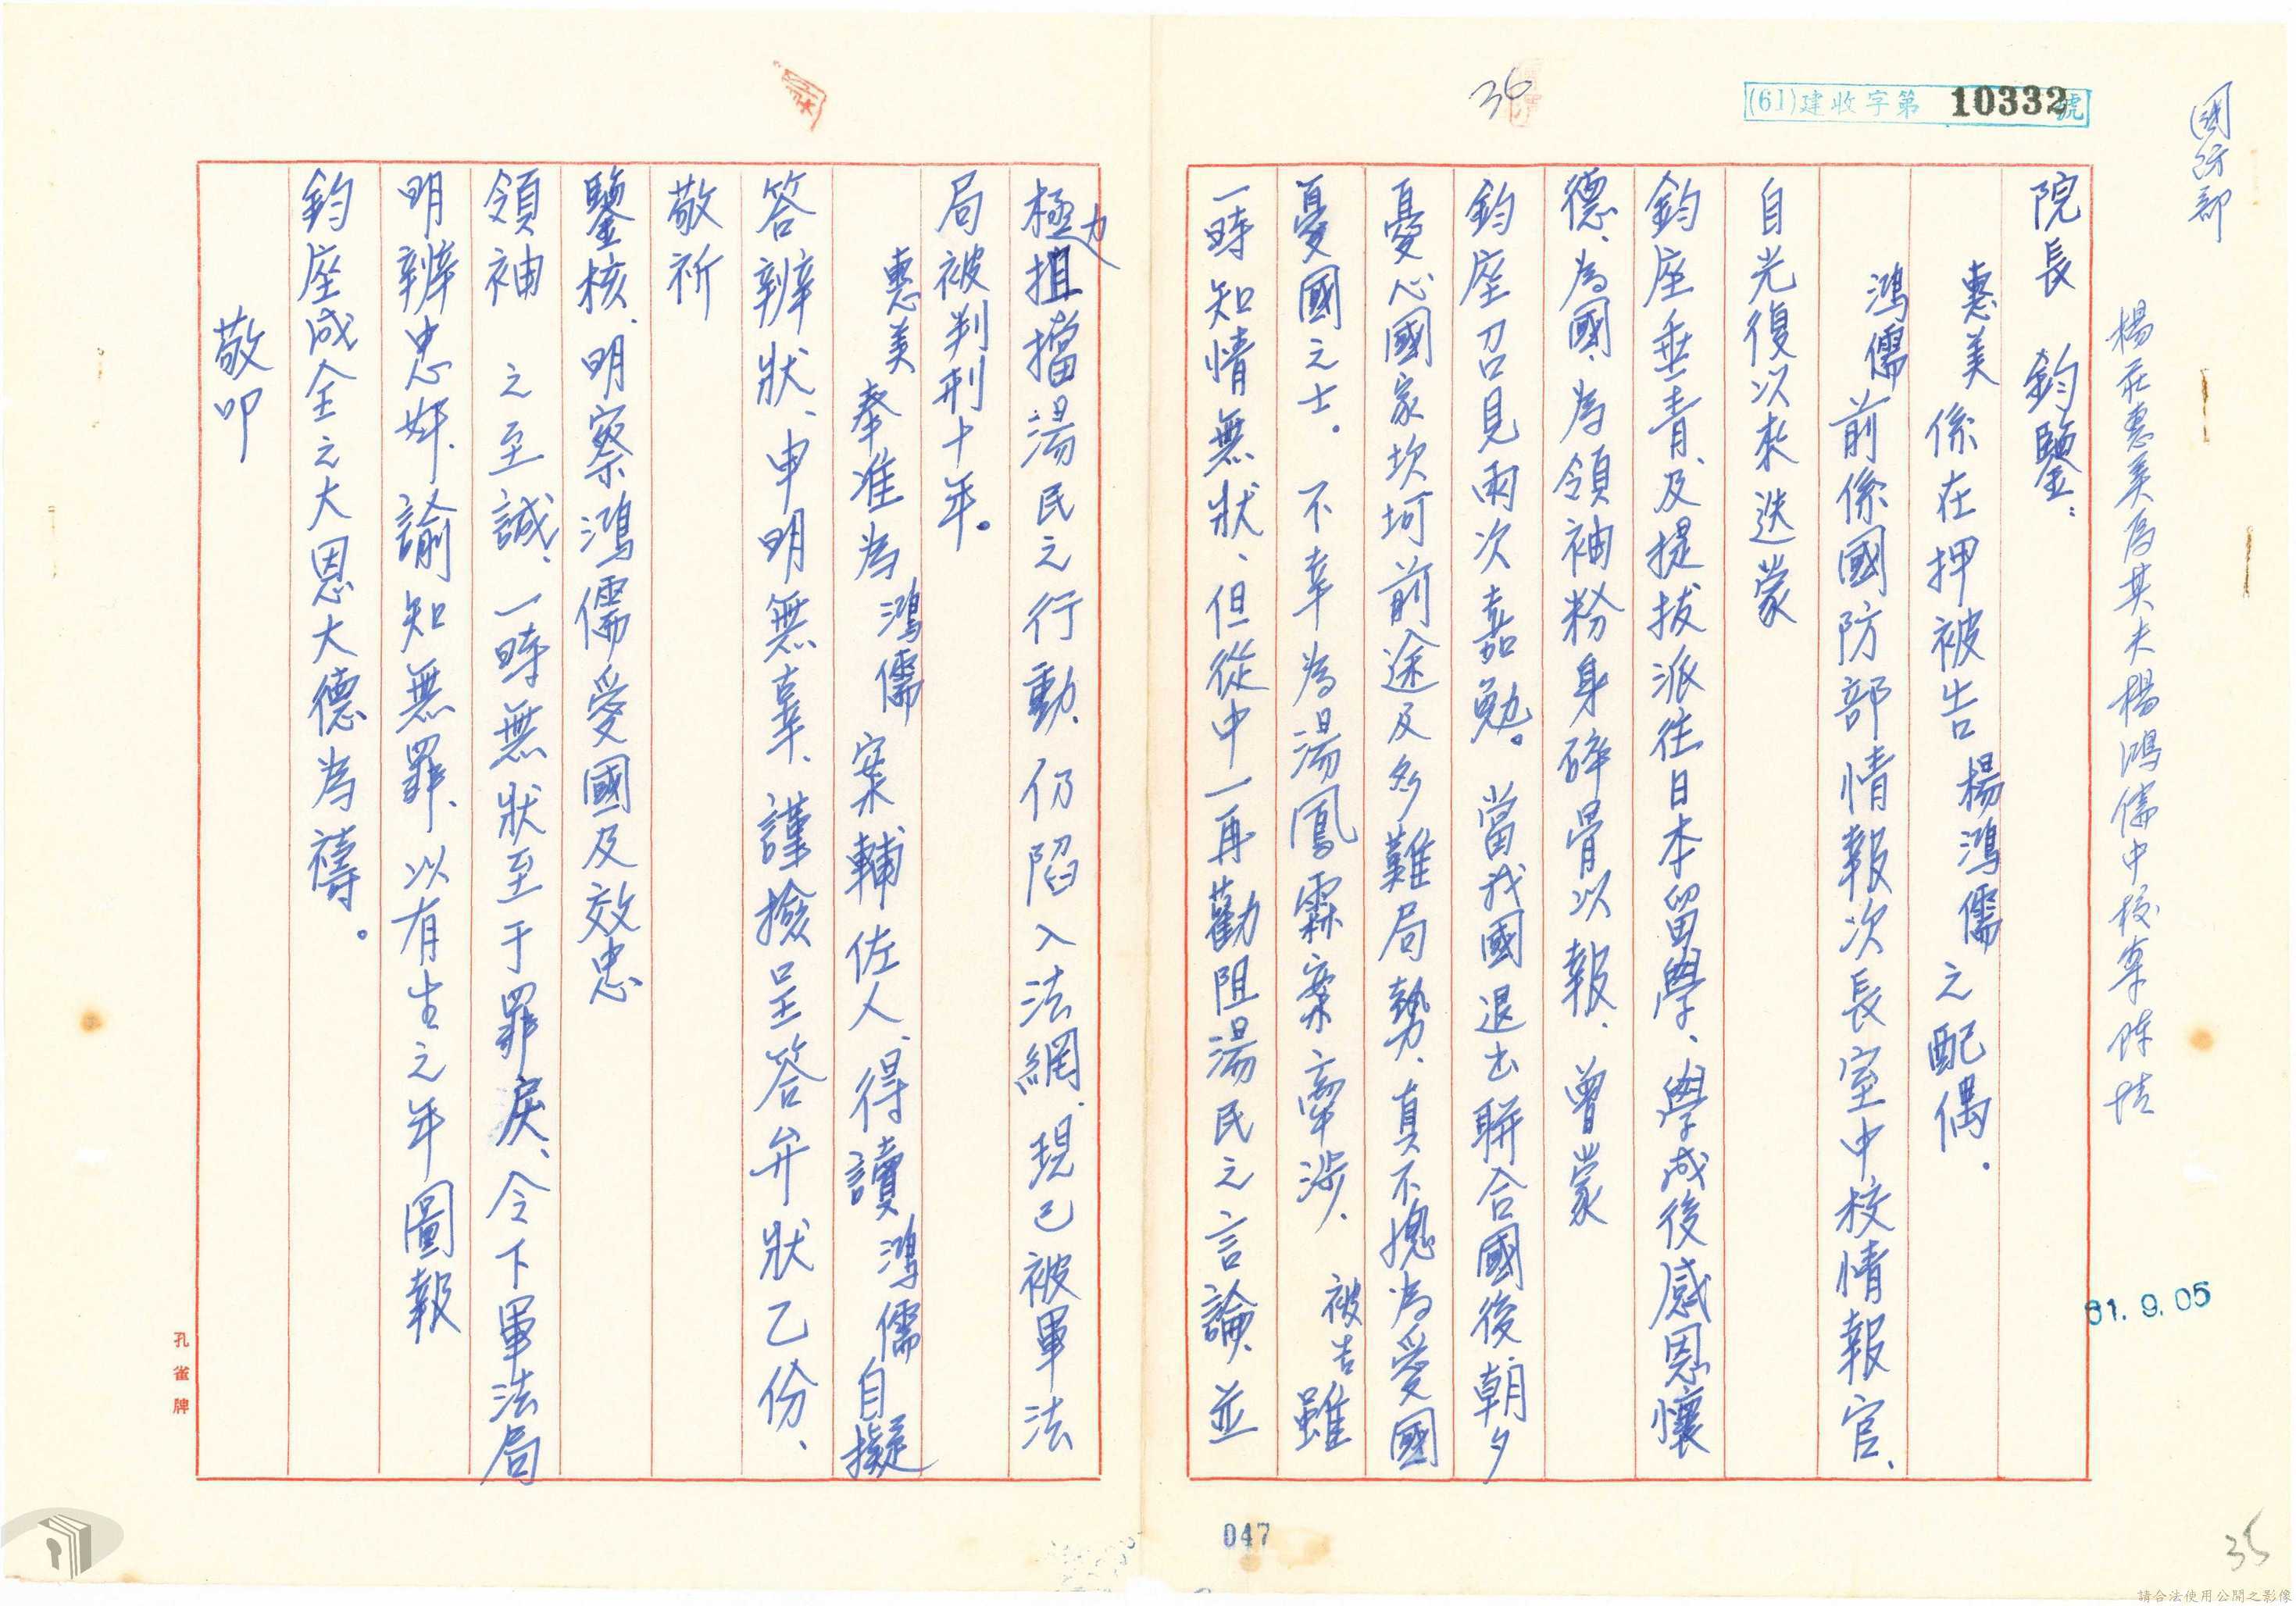 國防部
楊莊惠美為其夫楊鴻儒中校案陳情
(61)建收字第10332號
36
61.9.05
院長 鈞鑒：
惠美係在押被告楊鴻儒之配偶.
鴻儒前係國防部情報次長室中校情報官、
自光復以來迭蒙
鈞座垂青、及提拔派往日本留學、學成後感恩懷
德、為國、為領袖粉身碎骨以報、曾蒙
鈞座召見兩次嘉勉。當我國退出聯合國後、朝夕
憂心國家坎坷前途及多難局勢、真不愧為愛國
憂國之士。不幸為湯鳳霖案牽涉、被告雖
一時知情無狀、但從中一再勸阻湯民之言論、並
極力抯擋湯民之行動、仍陷入法網、現已被軍法
局被判刑十年。
惠美奉准為鴻儒案輔佐人、得讀鴻儒自擬
答辨狀、申明無辜、謹撿呈答弁狀乙份、
敬祈
鑒核、明察鴻儒愛國及效忠
領袖 之至誠、一時無狀至于罪戾、令下軍法局
明辨忠奸、諭知無罪、以有生之年圖報
鈞座成全之大恩大德為禱。
敬叩
孔雀牌
047
35
請合法使用公開之影像